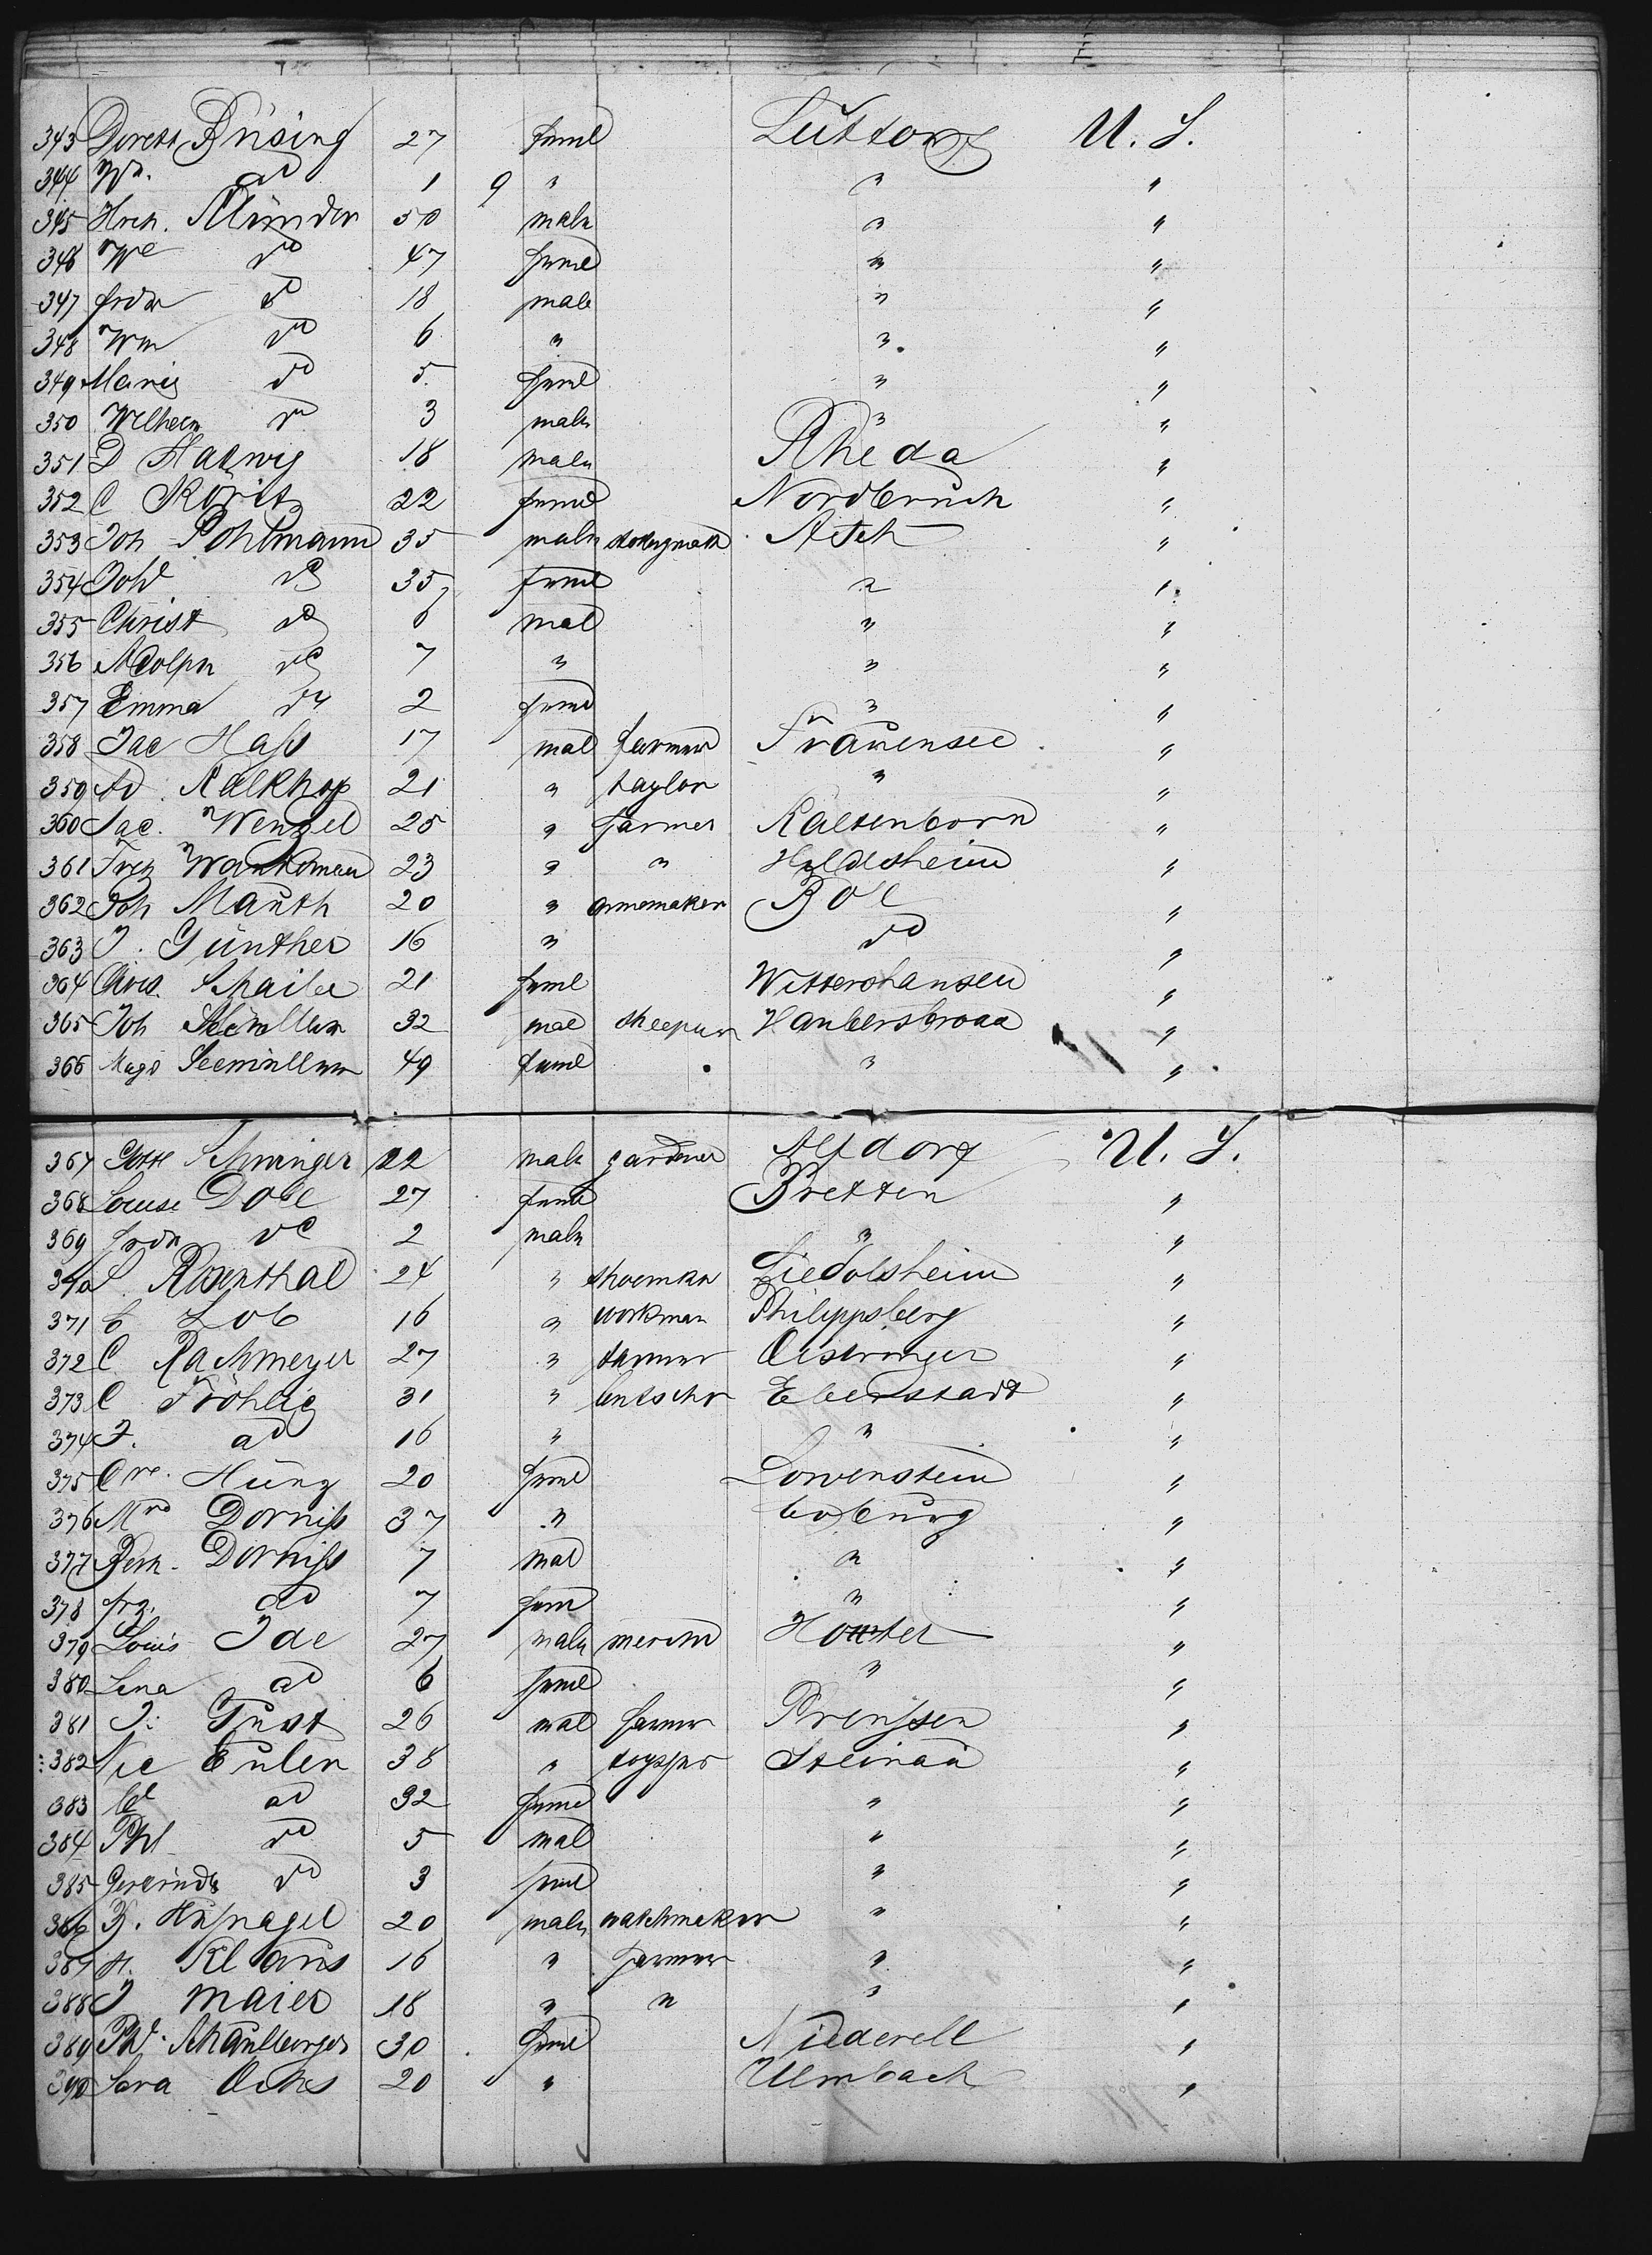 343 Dorett Büsing 27 feml Lüttorf U. S.
344 Wm. do 1 9 " " "
345 Hrch. Münder 50 male " "
346 We do 47 feml " "
347 frdr do 18 male " "
348 Wm do 6 " " "
349 Marie do 5 feml " "
350 Wilhelm do 3 male " "
351 D Hatwig 18 male Rheda "
352 C 22 feml Nordbruch "
353 Joh Pohlmann 35 male Asch "
354 Johe do 35 feml " "
355 Christ do mal " "
356 Adolph do 7 " " "
357 Emma do 2 feml " "
358 Jac Hass 17 mal farmer Frauensee "
359 Ad. Kalkhof 21 " taylor " "
360 Jac. Wenzel 25 " farmer Kaltenborn "
361 Frez 23 " " "
362 Joh Mauth 20 " Bol "
363 J. Günther 16 " do "
364 Chrs. Schaile 21 feml Wittershausen "
365 Joh 32 mal "
366 Magd Seemüller 49 feml " "
367 Schwinger 22 male gardener Altdorf U. S.
368 Louise Dobe 27 feml Bretten "
369 frdr do 2 male " "
370 S. Rosenthal 24 " shoemkr Liedolsheim "
371 Lob 16 " workman Philippsberg "
372 C Rachmeyer 27 " farmer "
373 C Fröhlig 31 " Eberstadt "
374 F. do 16 " " "
375 Cne. Hüng 20 feml Lowenstein "
376 Mrs Dorniss 37 " Coburg "
377 Bern. Dorniss 7 mal " "
378 frz. do 7 fem " "
379 Louis Ide 27 male merchd "
380 Lina do 6 feml " "
381 J: Tust 26 mal farmer Preussen "
382 Nic Euler 38 " Steinau "
383 do 32 feml " "
384 Phl do 5 mal " "
385 Gertrude do 3 feml " "
386 B. Hufnagel 20 male watchmaker " "
387 H. Klaus 16 " farmer " "
388 J Maier 18 " " " "
389 30 feml Niederell "
390 Sara Ochs 20 " Ulmbach "